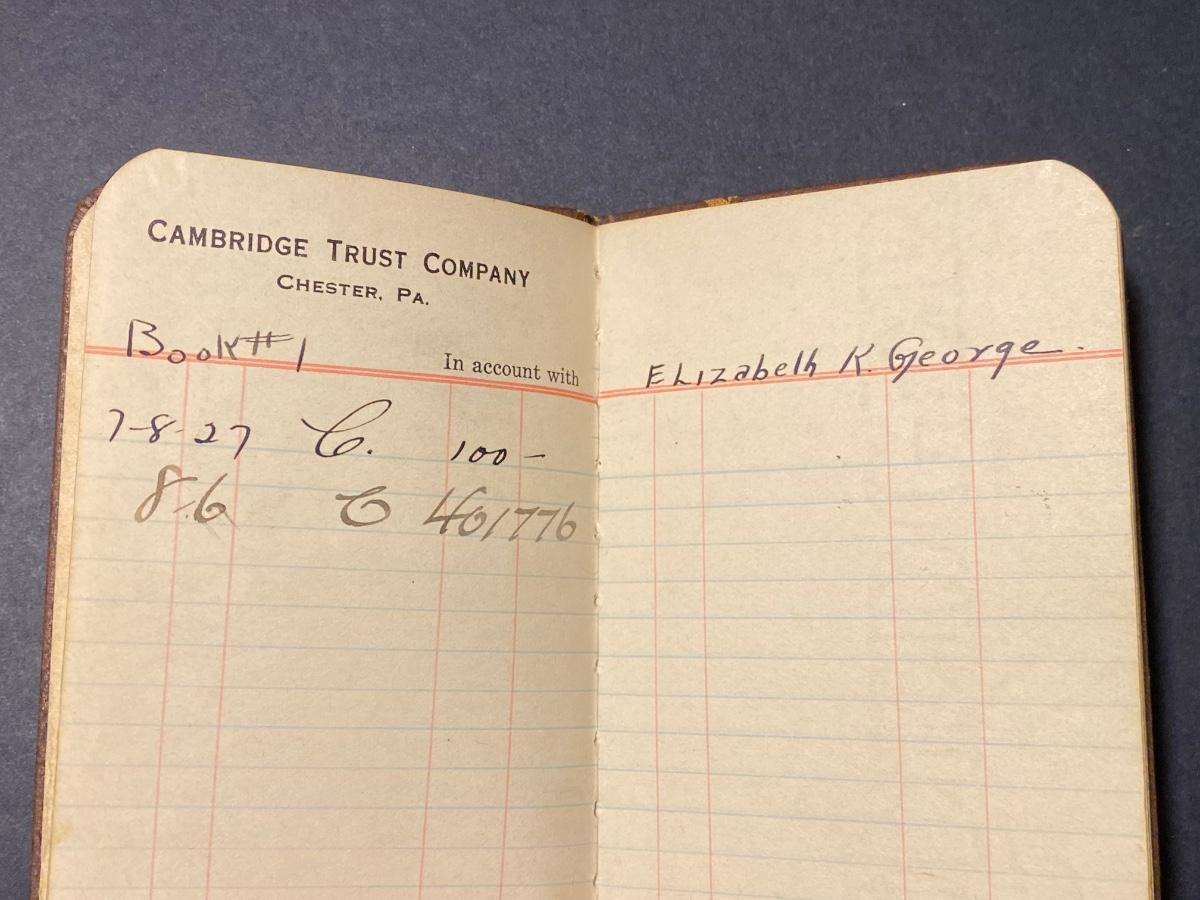 CAMBRIDGE TRUST COMPANY
CHESTER, PA.
Book #1
In account with
Elizabeth K. George.
7-8-27 C. 100 -
8-6 C 401776